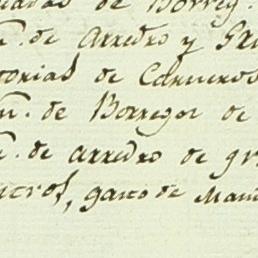 de Borreg.
n. de arredro y Gra
torias de Carneros
n. de Borregos de
n. de arredro de gr
neros, gasto de Man